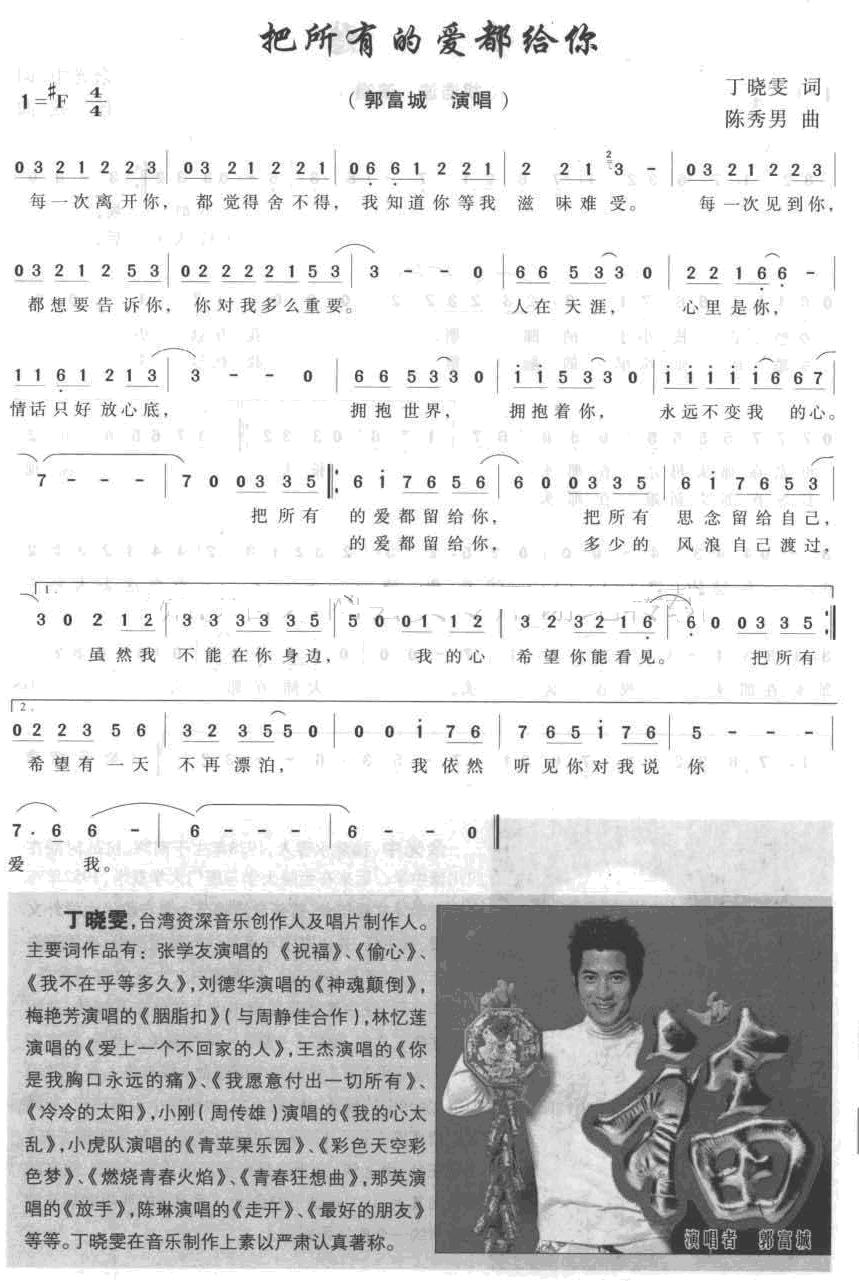 把所有的爱都给你
1=#F 4/4
(郭富城 演唱)
丁晓雯 词
陈秀男 曲
0 3 2 1 2 2 3 | 0 3 2 1 2 2 1 | 0 6 6 1 2 2 1 | 2 2 1 3 - | 0 3 2 1 2 2 3 |
每一次离开你, 都觉得舍不得, 我知道你等我 滋味难受。 每一次见到你,
0 3 2 1 2 5 3 | 0 2 2 2 2 1 5 3 | 3 - - 0 | 6 6 5 3 3 0 | 2 2 1 6 6 - |
都想要告诉你, 你对我多么重要。 人在天涯, 心里是你,
1 1 6 1 2 1 3 | 3 - - 0 | 6 6 5 3 3 0 | i i 5 3 3 0 | i i i i i 6 6 7 |
情话只好放心底, 拥抱世界, 拥抱着你, 永远不变我 的心。
7 - - - | 7 0 0 3 3 3 5 |: 6 i 7 6 5 6 | 6 0 0 3 3 5 | 6 i 7 6 5 3 |
把所有 的爱都留给你, 把所有 思念留给自己,
的爱都留给你, 多少的 风浪自己渡过,
1.
3 0 2 1 2 | 3 3 3 3 3 5 | 5 0 0 1 1 2 | 3 2 3 2 1 6 | 6 0 0 3 3 5 :|
虽然我 不能在你身边, 我的心 希望你能看见。 把所有
2.
0 2 2 3 5 6 | 3 2 3 5 5 0 | 0 0 i 7 6 | 7 6 5 i 7 6 | 5 - - - |
希望有一天 不再漂泊, 我依然 听见你对我说 你
7 . 6 6 - | 6 - - - | 6 - - 0 ||
爱 我。
丁晓雯,台湾资深音乐创作人及唱片制作人。
主要词作品有:张学友演唱的《祝福》、《偷心》、
《我不在乎等多久》,刘德华演唱的《神魂颠倒》,
梅艳芳演唱的《胭脂扣》(与周静佳合作),林忆莲
演唱的《爱上一个不回家的人》,王杰演唱的《你
是我胸口永远的痛》、《我愿意付出一切所有》、
《冷冷的太阳》,小刚(周传雄)演唱的《我的心太
乱》,小虎队演唱的《青苹果乐园》、《彩色天空彩
色梦》、《燃烧青春火焰》、《青春狂想曲》,那英演
唱的《放手》,陈琳演唱的《走开》、《最好的朋友》
等等。丁晓雯在音乐制作上素以严肃认真著称。
福
演唱者 郭富城